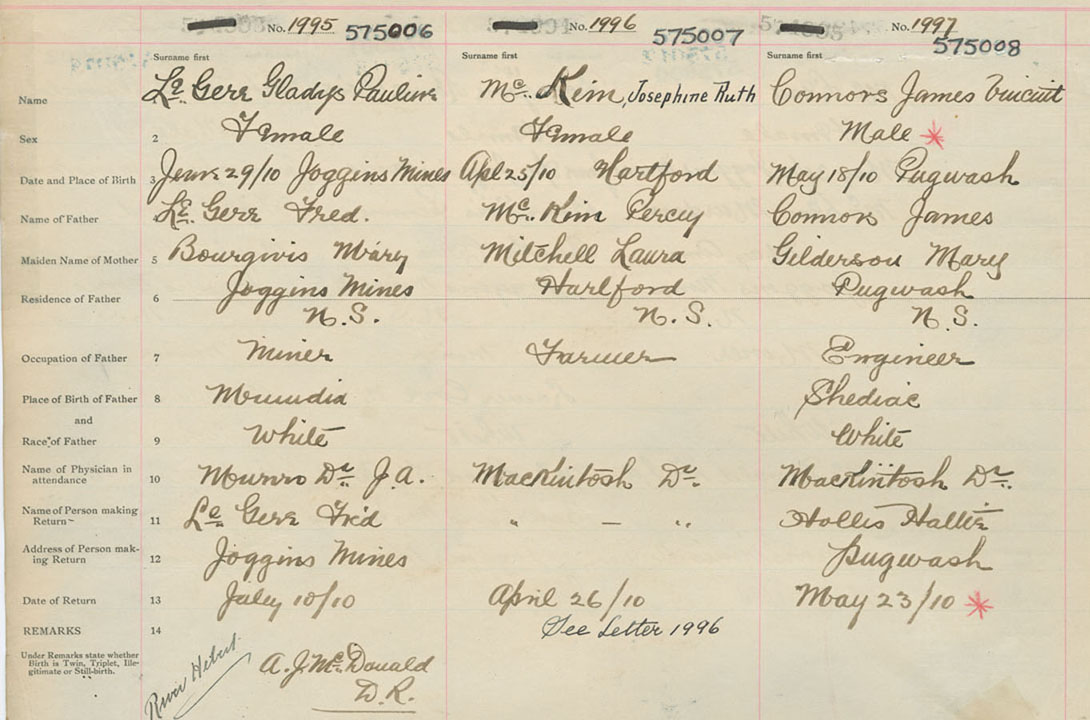 No. 1995 575006 No. 1996 575007 No. 1997 575008
Surname first Surname first Surname first
Name Le Gere Gladys Pauline Mc. Kim, Josephine Ruth Connors James Vincint
Sex 2 Female Female Male *
Date and Place of Birth 3 June 29/10 Joggins Mines Apl 25/10 Hartford May 18/10 Pugwash
Name of Father Le Gere Fred. Mc. Kim Percy Connors James
Maiden Name of Mother 5 Bourgivis Mary Mitchell Laura Gilderson Mary
Residence of Father 6 Joggins Mines Hartford Pugwash
N.S. N.S. N.S.
Occupation of Father 7 Miner Farmer Engineer
Place of Birth of Father 8 Shediac
and
Race of Father 9 White White
Name of Physician in
attendance 10 Munro Dr. J.A. MacKintosh Dr. MacKintosh Dr.
Name of Person making
Return 11 Le Gere Fred " — " Hollis Hattie
Address of Person mak-
ing Return 12 Joggins Mines Pugwash
Date of Return 13 July 10/10 April 26/10 May 23/10 *
REMARKS 14 See Letter 1996
Under Remarks state whether
Birth is Twin, Triplet, Ille-
gitimate or Still-birth.
River Hebert
A. J. Mc. Donald
D. R.